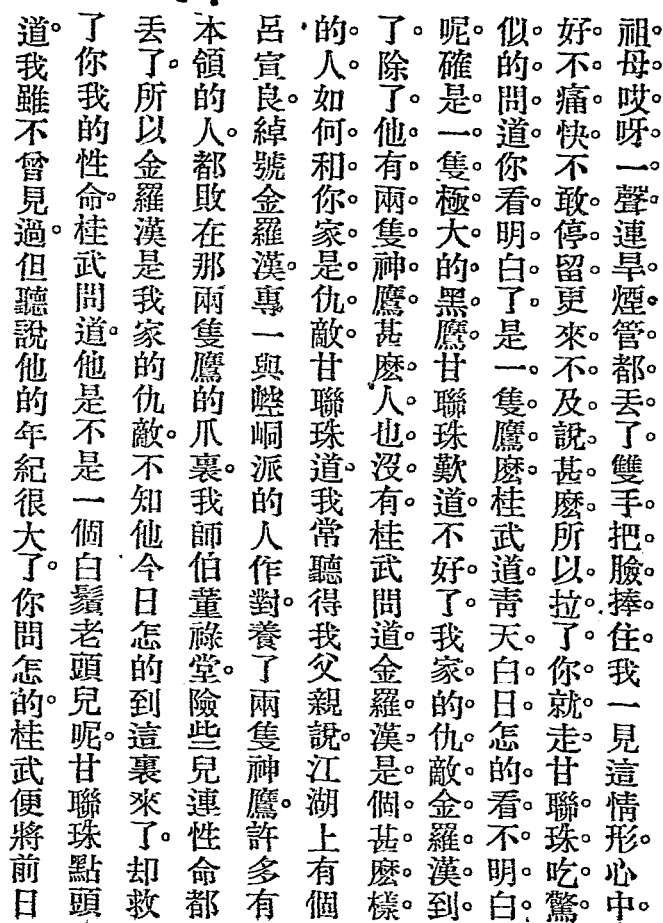 祖母哎呀一聲連旱煙管都丟了雙手把臉捧住我一見這情形心中
好不痛快不敢停留更來不及說甚麼所以拉了你就走甘聯珠吃驚
似的問道你看明白了是一隻鷹麼桂武道青天白日怎的看不明白
呢確是一隻極大的黑鷹甘聯珠歎道不好了我家的仇敵金羅漢到
了除了他有兩隻神鷹甚麼人也沒有桂武問道金羅漢是個甚麼樣
的人如何和你家是仇敵甘聯珠道我常聽得我父親說江湖上有個
呂宣良綽號金羅漢專一與崆峒派的人作對養了兩隻神鷹許多有
本領的人都敗在那兩隻鷹的爪裏我師伯董祿堂險些兒連性命都
丟了所以金羅漢是我家的仇敵不知他今日怎的到這裏來了却救
了你我的性命桂武問道他是不是一個白鬚老頭兒呢甘聯珠點頭
道我雖不曾見過但聽說他的年紀很大了你問怎的桂武便將前日